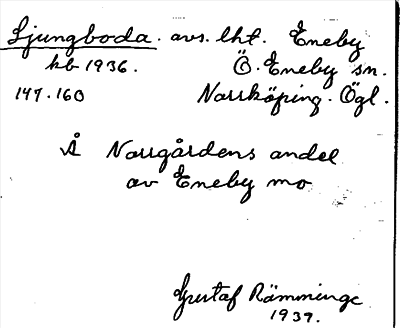 Ljungboda. avs. lht. Eneby
kb 1936. Ö. Eneby sn.
147.160 Norrköping. Ögl.
Å Norrgårdens andel
av Eneby mo
Gustaf Rämminge
1937.